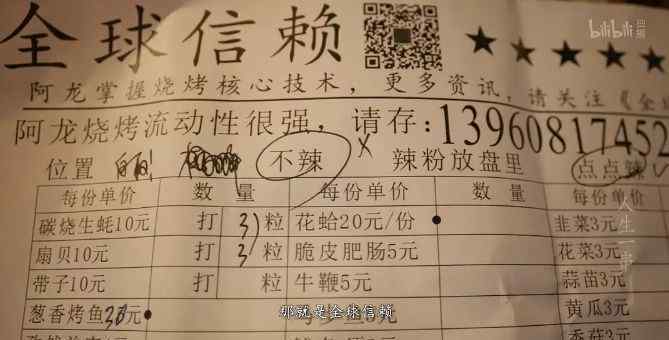 全球信赖
★ ★ ★ ★ ★
bilibili
阿龙掌握烧烤核心技术，更多资讯，请关注《全
阿龙烧烤流动性很强，请存：13960817452
位置 不辣 辣粉放盘里 点点辣
每份单价 数 量 每份单价 数 量 每份单价
碳烧生蚝10元 打 3 粒 花蛤20元/份 韭菜3元
扇贝10元 打 3 粒 脆皮肥肠5元 花菜3元
带子10元 打 粒 牛鞭5元 蒜苗3元
葱香烤鱼30元 黄瓜3元
香菇3元
人生一串
那就是全球信赖